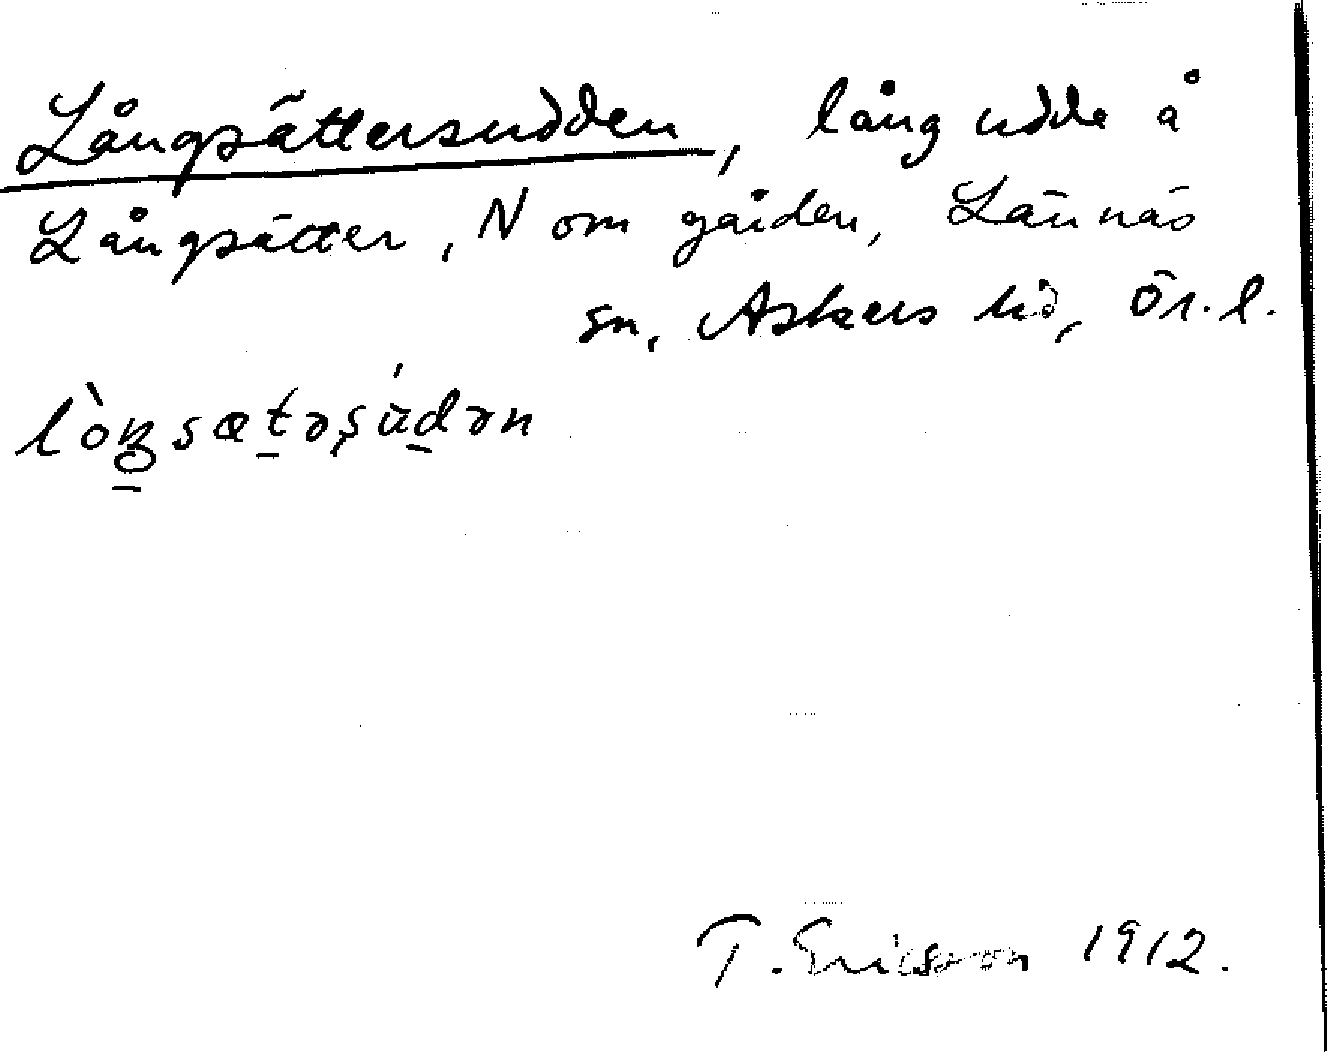 Långsättersudden, lång udde å
Långsätter, N om gården, Lännäs
sn, Askers hd, Ör. l.
lòŋsætəṣùdən
T. Ericsson 1912.